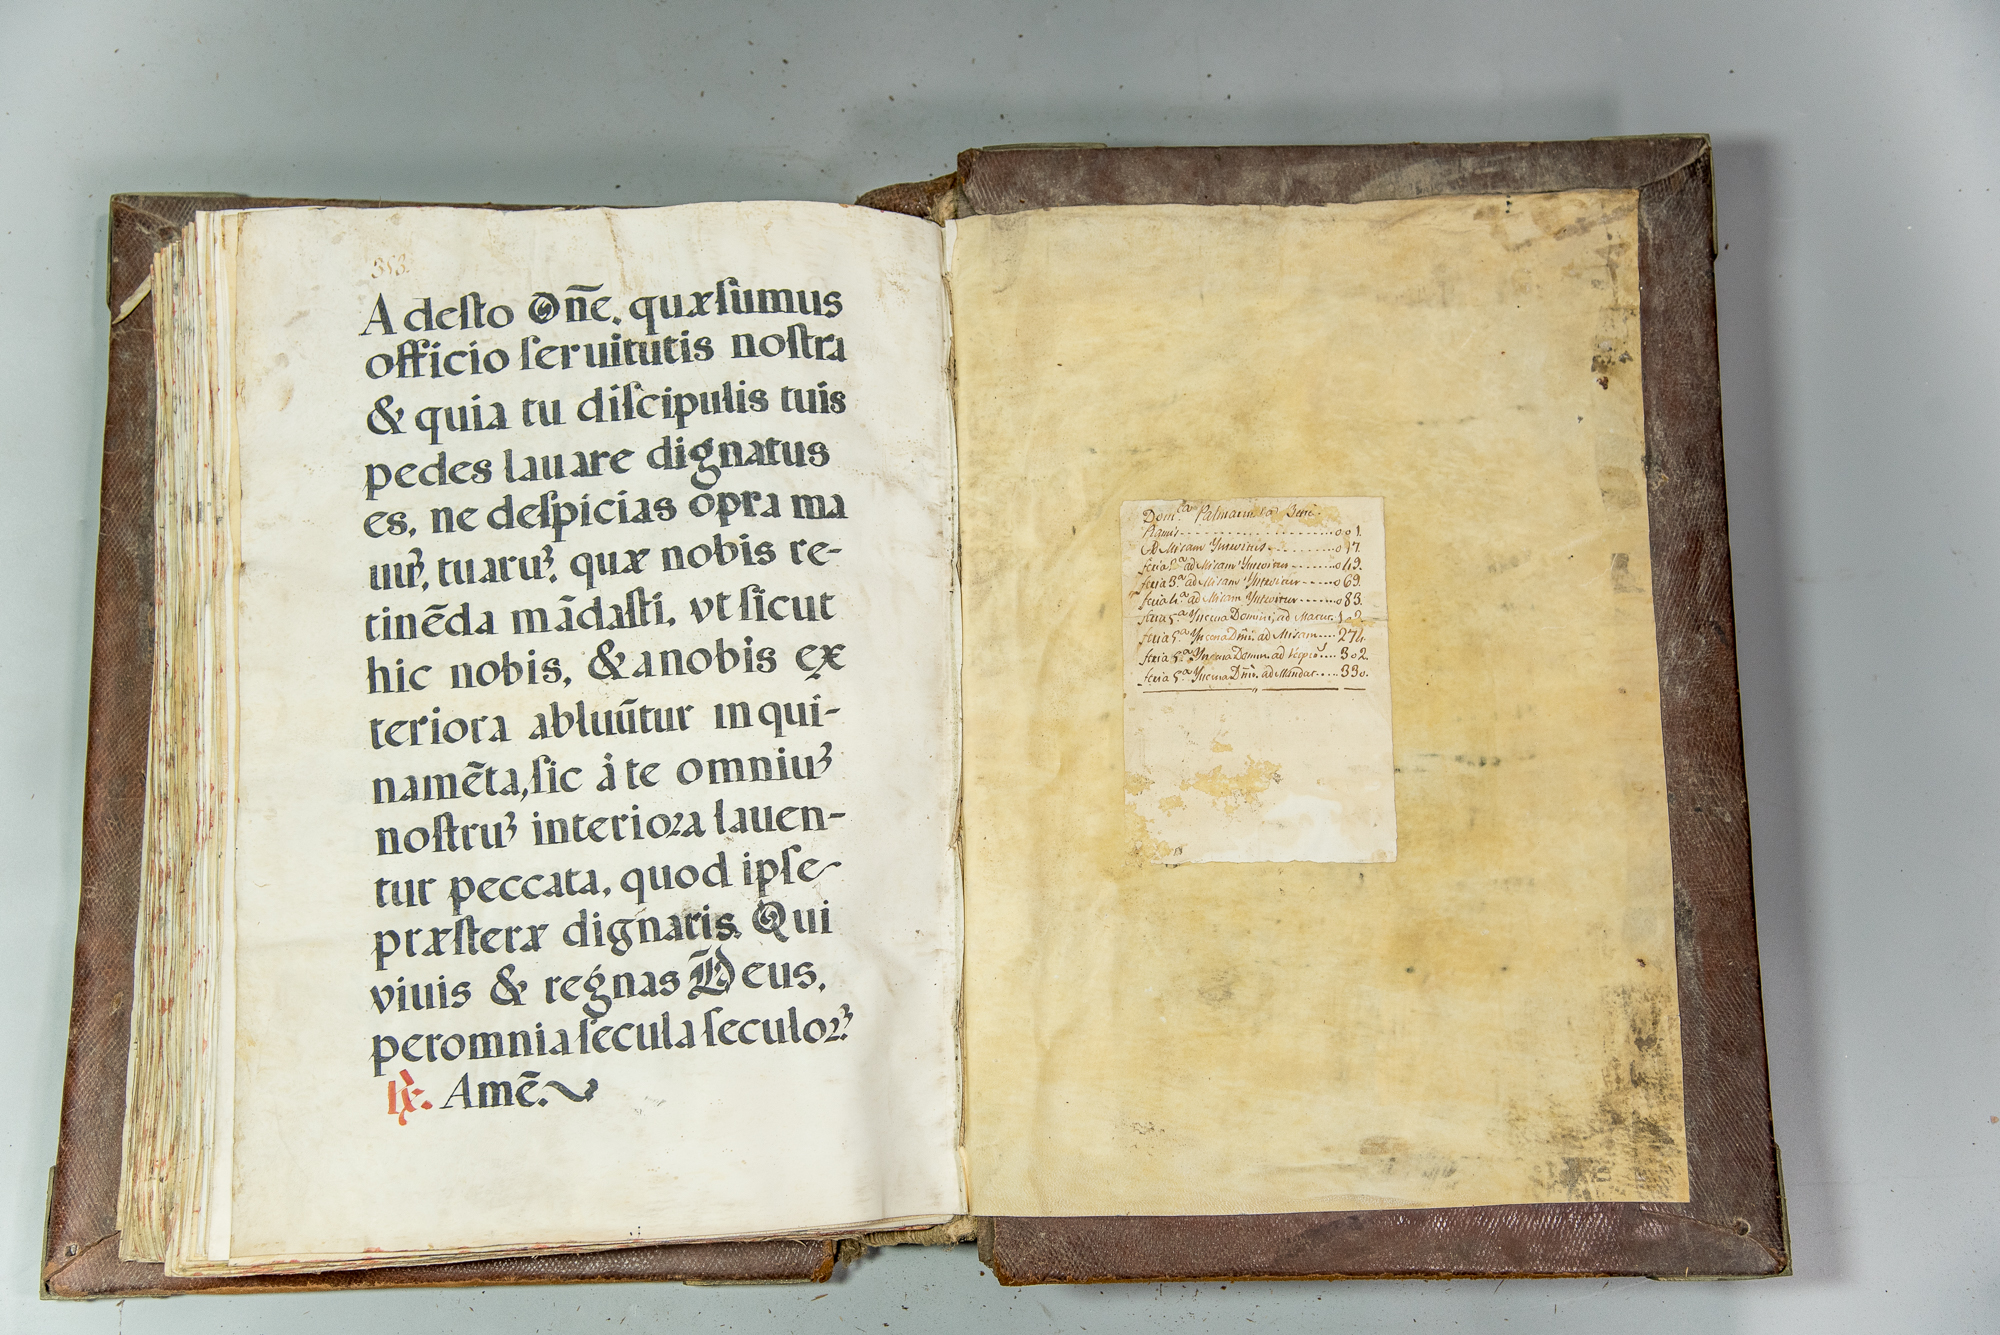 353.
Adesto Dn̄e, quæsumus
officio seruitutis nostra
& quia tu discipulis tuis
pedes lauare dignatus
es, ne despicias opra ma
uuꝫ, tuaruꝫ, quæ nobis re-
tinēda mādasti, vt sicut
hic nobis, & anobis ex
teriora abluūtur inqui-
namēta, sic à te omniuꝫ
nostruꝫ interiora lauen-
tur peccata, quod ipse
præsteræ dignaris. Qui
viuis & regnas D̄eus,
peromnia secula seculoꝝ.
℟. Amē.
Dom.ca Palmarum ad
Ramis 001.
Ad Missam Yntroitus 017.
feria 2.a ad Missam Yntroitus 049.
feria 3.a ad Missam Yntroitus 069.
feria 4.a ad Missam Yntroitus 083.
feria 5.a Yncena Domini, ad Matut. 102.
feria 5.a Yncena Dñi. ad Missam 274.
feria 5.a Yncena Domini. ad 302.
feria 5.a Yncena Dñi. ad Mandat. 330.